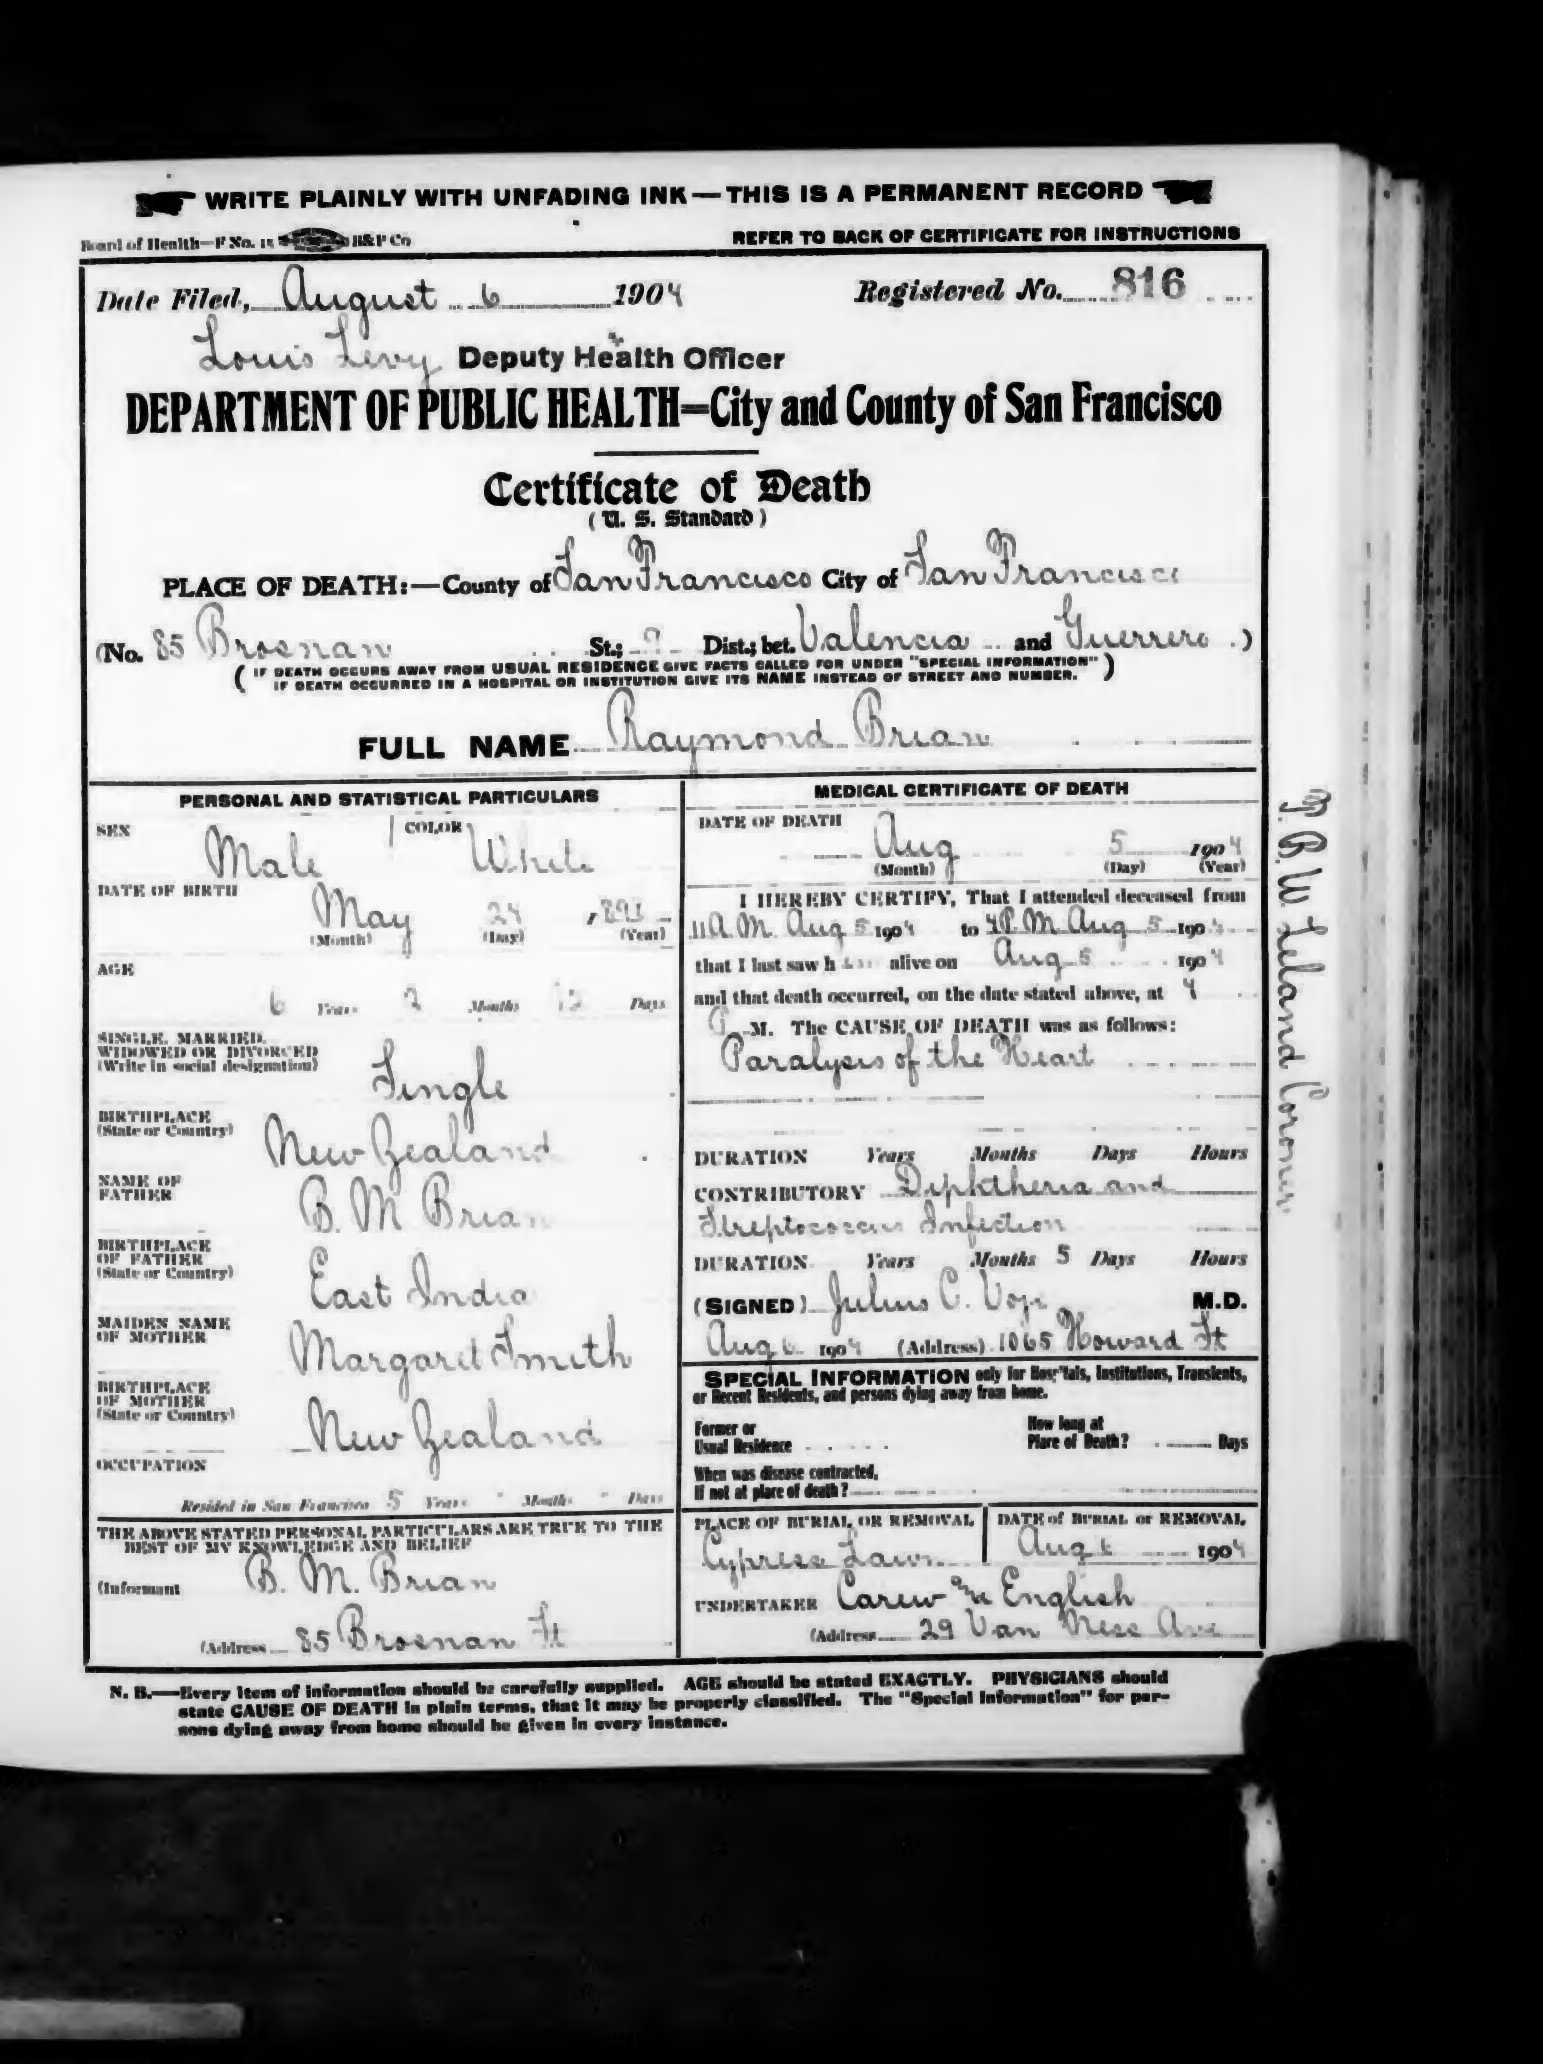 WRITE PLAINLY WITH UNFADING INK — THIS IS A PERMANENT RECORD
Board of Health—F No. 15 H&P Co
REFER TO BACK OF CERTIFICATE FOR INSTRUCTIONS
Date Filed, August 6 1904 Registered No. 816
Louis Levy Deputy Health Officer
DEPARTMENT OF PUBLIC HEALTH=City and County of San Francisco
Certificate of Death
(U. S. Standard)
PLACE OF DEATH:—County of San Francisco City of San Francisco
(No. 85 Brosnan St.; 9 Dist.; bet. Valencia and Guerrero )
( IF DEATH OCCURS AWAY FROM USUAL RESIDENCE GIVE FACTS CALLED FOR UNDER "SPECIAL INFORMATION"
IF DEATH OCCURRED IN A HOSPITAL OR INSTITUTION GIVE ITS NAME INSTEAD OF STREET AND NUMBER. )
FULL NAME Raymond Brian
PERSONAL AND STATISTICAL PARTICULARS
SEX Male COLOR White
DATE OF BIRTH May 24
(Month) (Day) (Year)
AGE
6 Years 2 Months 12 Days
SINGLE, MARRIED,
WIDOWED OR DIVORCED
(Write in social designation)
Single
BIRTHPLACE
(State or Country)
New Zealand
NAME OF
FATHER
B. M Brian
BIRTHPLACE
OF FATHER
(State or Country)
East India
MAIDEN NAME
OF MOTHER
Margaret Smith
BIRTHPLACE
OF MOTHER
(State or Country)
New Zealand
OCCUPATION
Resided in San Francisco 5 Years - Months - Days
THE ABOVE STATED PERSONAL PARTICULARS ARE TRUE TO THE
BEST OF MY KNOWLEDGE AND BELIEF
(Informant B. M. Brian
(Address 85 Brosnan St
MEDICAL CERTIFICATE OF DEATH
DATE OF DEATH
Aug 5 1904
(Month) (Day) (Year)
I HEREBY CERTIFY, That I attended deceased from
11 A. M. Aug 5 1904 to 4 P. M Aug 5 1904
that I last saw h alive on Aug 5 1904
and that death occurred, on the date stated above, at 4
P. M. The CAUSE OF DEATH was as follows:
Paralysis of the Heart
DURATION Years Months Days Hours
CONTRIBUTORY Diphtheria and
Streptococcus Infection
DURATION Years Months 5 Days Hours
(SIGNED) Julius C. M.D.
Aug 6 1904 (Address) 1065 Howard St
SPECIAL INFORMATION only for Hospitals, Institutions, Transients,
or Recent Residents, and persons dying away from home.
Former or
Usual Residence
How long at
Place of Death? Days
When was disease contracted,
If not at place of death?
PLACE OF BURIAL OR REMOVAL
Cypress Lawn
DATE of BURIAL or REMOVAL
Aug 6 1904
UNDERTAKER Carew and English
(Address 29 Van Ness Ave
N. B.—Every item of information should be carefully supplied. AGE should be stated EXACTLY. PHYSICIANS should
state CAUSE OF DEATH in plain terms, that it may be properly classified. The "Special Information" for per-
sons dying away from home should be given in every instance.
T. B. W. Leland Coroner